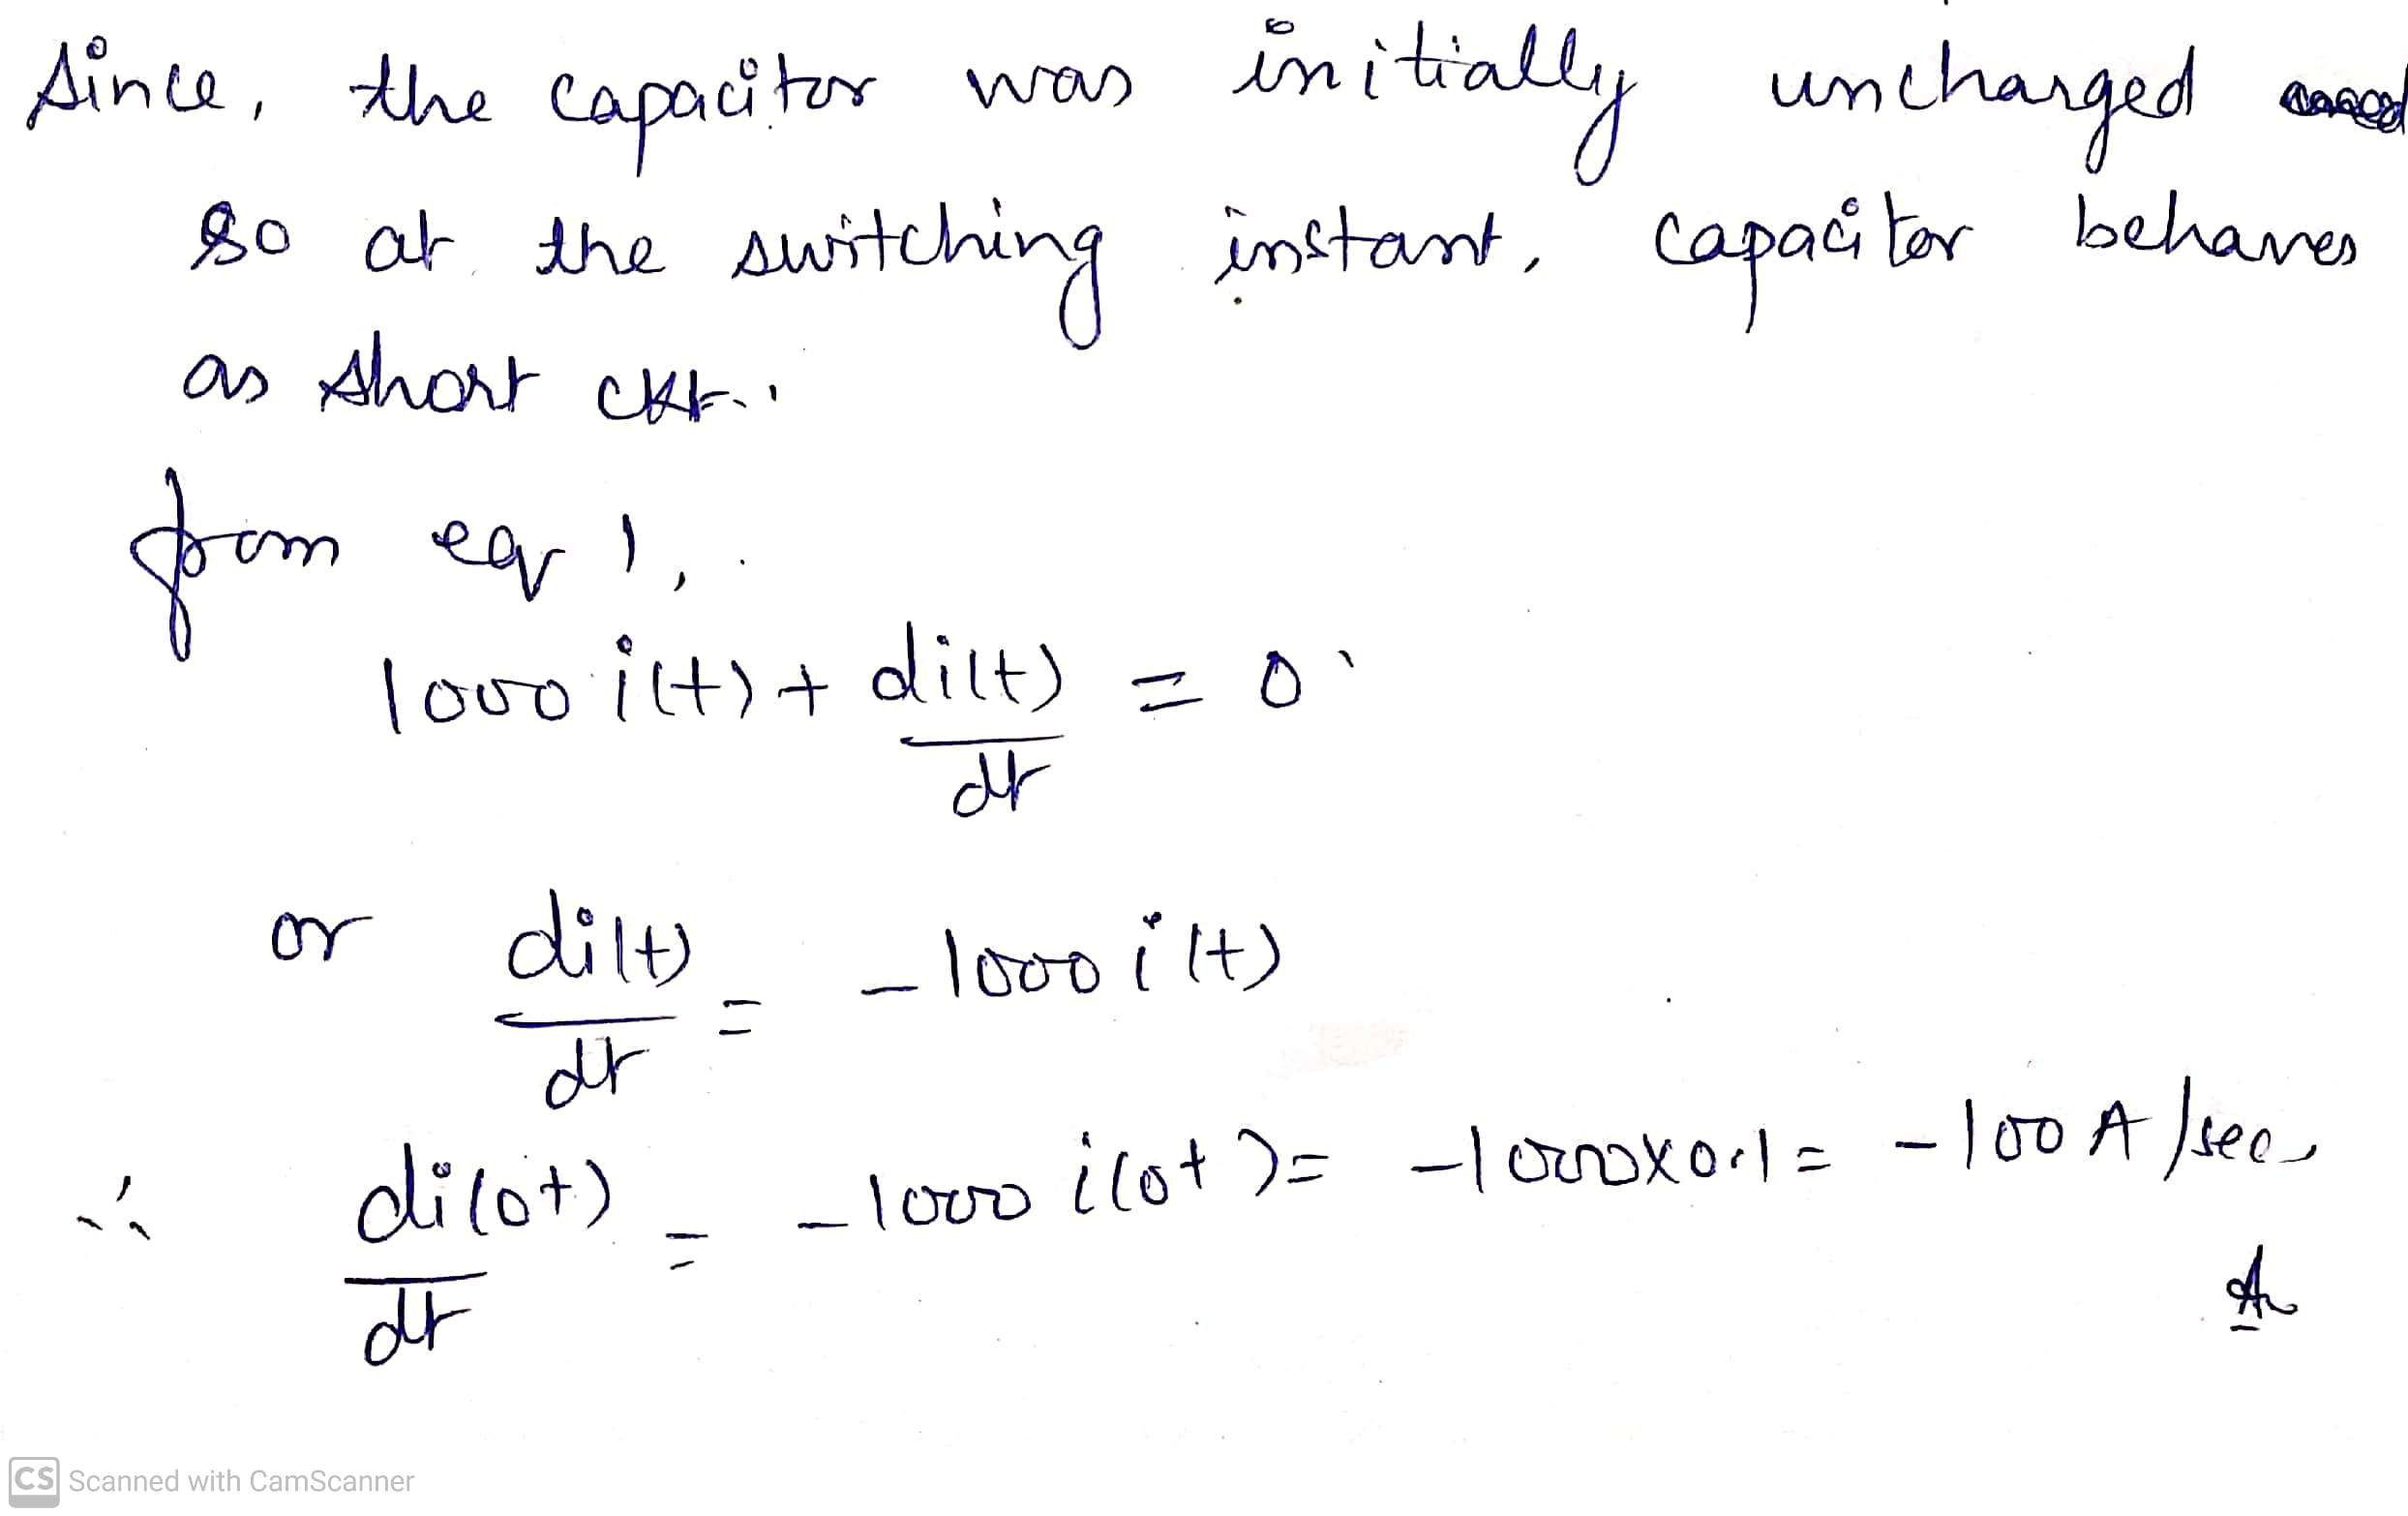 Since, the capacitor was initially uncharged
so at the switching instant, capacitor behaves
as short ckt.
from eq 1,
1000 i(t) + di(t)/dt = 0
or di(t)/dt = -1000 i(t)
∴ di(0+)/dt = -1000 i(0+) = -1000x0.1 = -100 A/sec
A
CS Scanned with CamScanner